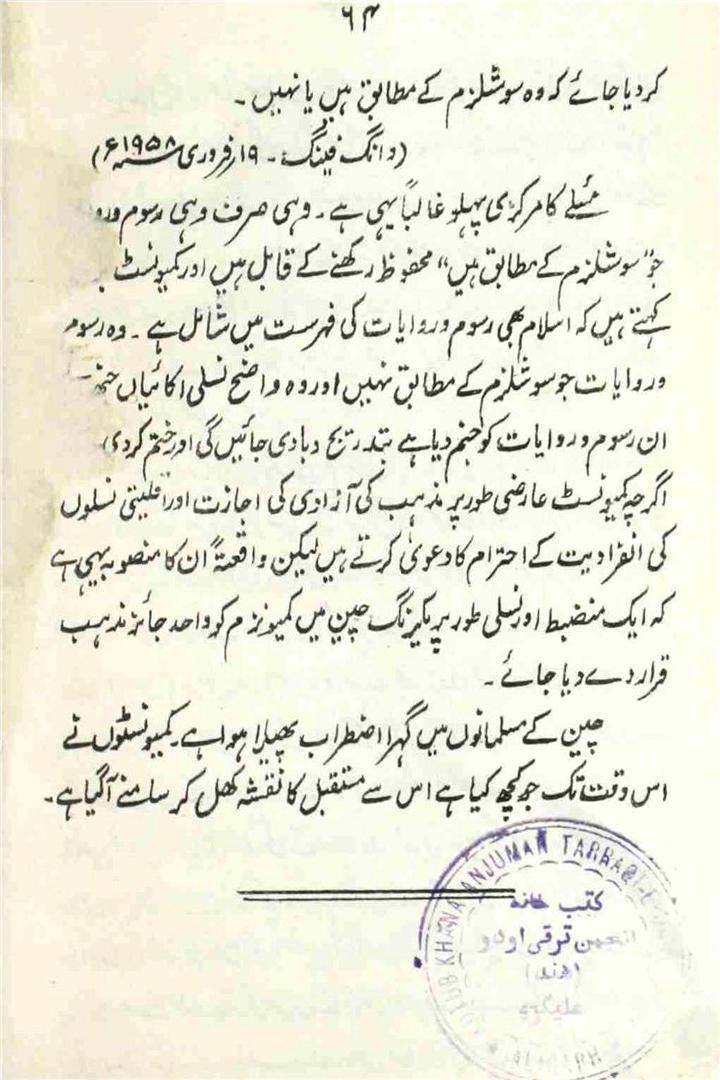 ۶۴
کر دیا جائے کہ وہ سوشلزم کے مطابق ہیں یا نہیں۔
(وانگ فینگ:۔ ۱۹ر فروری ۱۹۵۸ء)
مئلے کا مرکزی پہلو غالباً یہی ہے۔ وہی صرف وہی رسوم ورو
جو ”سوشلزم کے مطابق ہیں“ محفوظ رکھنے کے قابل ہیں اور کمیونسٹ
کہتے ہیں کہ اسلام بھی رسوم و روایات کی فہرست میں شامل ہے۔ وہ رسوم
و روایات جو سوشلزم کے مطابق نہیں اور وہ واضح نسلی اکائیاں جنھ
ان رسوم و روایات کو جنم دیا ہے بتدریج دبا دی جائیں گی اور ختم کر دی
اگرچہ کمیونسٹ عارضی طور پر مذہب کی آزادی کی اجازت اور اقلیتی نسلوں
کی انفرادیت کے احترام کا دعویٰ کرتے ہیں لیکن واقعتہً ان کا منصوبہ یہی ہے
کہ ایک منضبط اور نسلی طور پر یکرنگ چین میں کمیونزم کو واحد جائز مذہب
قرار دے دیا جائے۔
چین کے مسلمانوں میں گہرا اضطراب پھیلا ہوا ہے۔ کمیونسٹوں نے
اس وقت تک جو کچھ کیا ہے اس سے مستقبل کا نقشہ کھل کر سامنے آگیا ہے۔
KUTUB KHANA ANJUMAN TARRAQI-E
کتب خانہ
انجمن ترقی اردو
(ہند)
علیگڑھ
ALIGARH